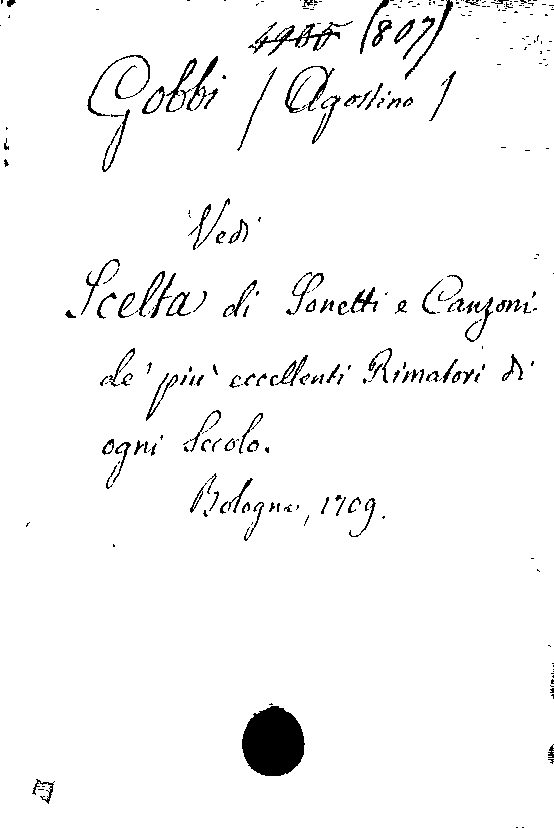 (807)
Gobbi / Agostino /
Vedi
Scelta di Sonetti e Canzoni
de' più eccellenti Rimatori di
ogni Secolo.
Bologna, 1709.